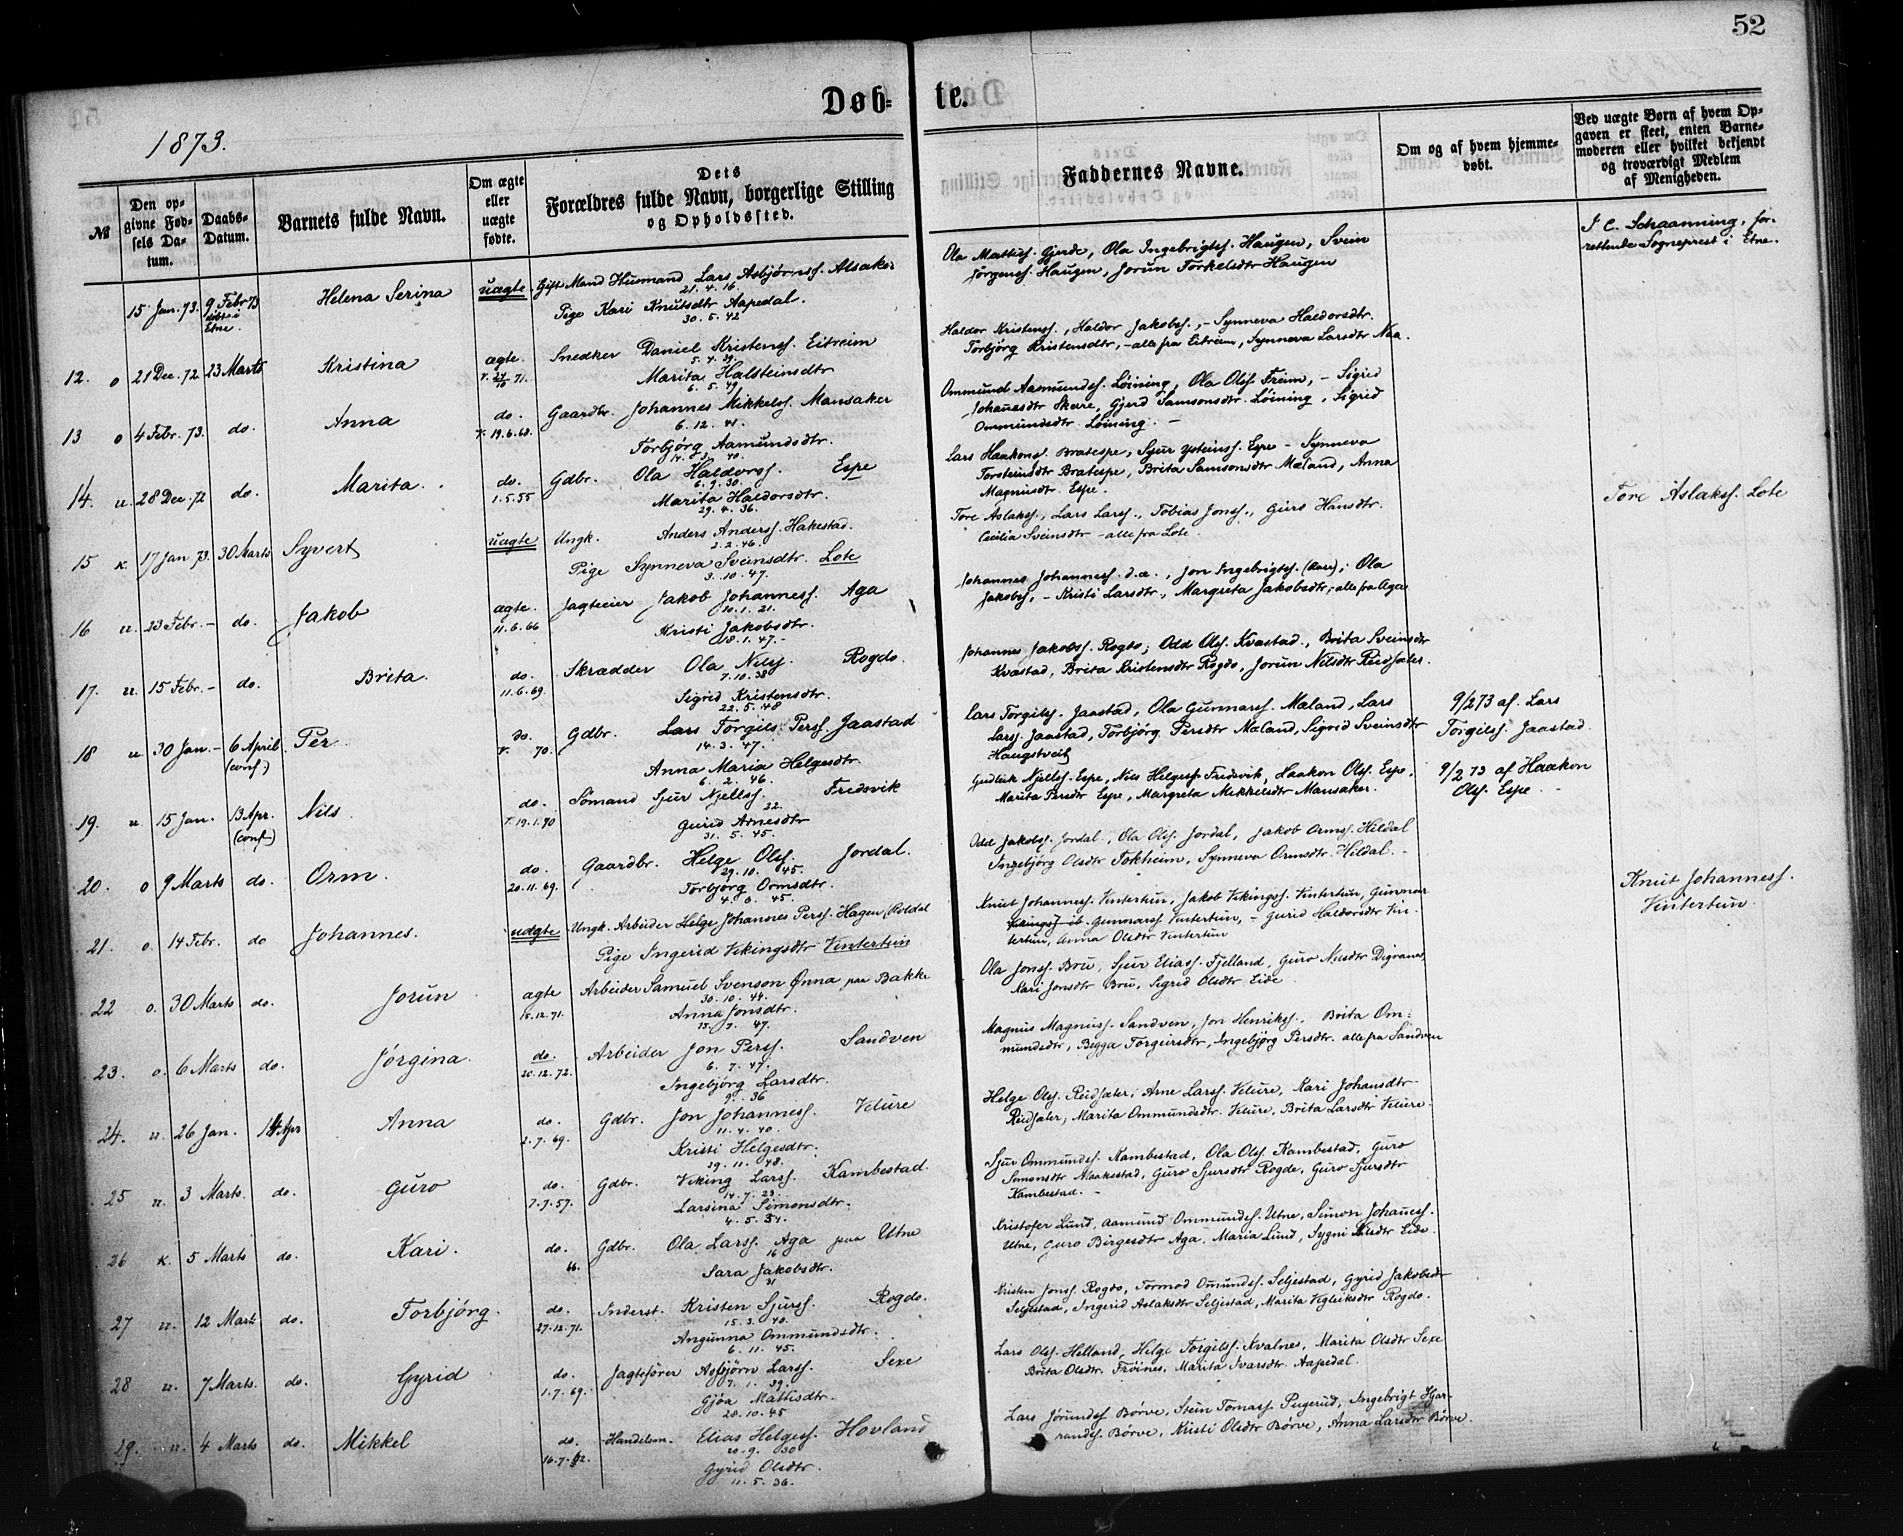 52
Døb-
te.
1873.
№
Den op-
givne Fød-
sels Da-
tum.
Daabs-
Datum.
Barnets fulde Navn.
Om ægte
eller
uægte
fødte.
Dets
Forældres fulde Navn, borgerlige Stilling
og Opholdssted.
Faddernes Navne.
Om og af hvem hjemme-
døbt.
Ved uægte Børn af hvem Op-
gaven er skeet, enten Barne-
moderen eller hvilket bekjendt
og troværdigt Medlem
af Menigheden.
15 Jan. 73. 9 Febr 73 Helena Serina uægte Gift Mand Husmand Lars Asbjørnss. Alsaker
døbt i
Etne.
21. 4. 16
Pige Kari Knutsdtr Aapedal.
30. 5. 42
Ola Mattiss. Gjerde, Ola Ingebrigtss. Haugen, Svein
Jørgenss. Haugen, Jorun Torkelsdtr Haugen
J C. Schaanning, for-
rettende Sogneprest i Etne.
12. o 21 Dec. 72 23 Marts Kristina ægte. Snedker Daniel Kristenss. Eitreim
5. 4. 39.
Marita Halsteinsdtr
6. 5. 49
Haldor Kristenss., Haldor Jakobss., - Synneva Haldorsdtr.
Torbjörg Kristensdtr, - alle fra Eitreim, Synneva Larsdtr Naa.
13 o 4 Febr. 73. do. Anna do. Gaardbr. Johannes Mikkelss. Mansaker
6. 12. 41.
19.6.68.
Torbjörg Aamundsdtr.
Ommund Aamundss. Löining, Ola Olss. Freim, - Sigrid
Johanesdtr Skare, Gjerd Samsonsdtr. Löining, Sigrid
Ommundsdtr. Löining. -
14. u. 28 Dec. 72 do. Marita. do. Gdbr. Ola Haldorss. Espe
6. 9. 30.
1.5.55
Marita Haldorsdtr.
29. 4. 36.
Lars Haakonss. Bratespe, Sjur Ysteinss. Espe - Synneva
Torsteinsdtr Bratespe, Brita Samsonsdtr Mæland, Anna
Magnusdtr. Espe.
15 k. 17 Jan 73. 30 Marts Syvert uægte Ungk. Anders Anderss. Hakestad.
2. 2. 46.
Pige Synneva Sveinsdtr. Lote
3. 10. 47.
Tore Aslakss., Lars Larss., Tobias Jonss., Guro Hansdtr.
Cecilia Sveinsdtr - alle fra Lote.
Tore Aslakss. Lote
16 u. 23 Febr. - do. Jakob ægte. Jagteeier Jakob Johanness. Aga
10. 1. 21.
11.6.66
Kristi Jakobsdtr.
18. 1. 47. -
Johannes Johanness. d.æ., Jon Ingebrigtss. , Ola
Jakobss, - Kristi Larsdtr., Margreta Jakobsdtr; alle fra Aga
17. u. 15 Febr. - do. Brita. do. Skrædder Ola Nilss. Rogdo.
7. 10. 38
11.6.69.
Sigrid Kristensdtr.
22. 5. 48
Johannes Jakobss. Rogdo; Odd Olss. Kvæstad., Brita Sveinsdtr
Kvæstad, Brita Kristensdtr Rogdo, Jorun Nilsdtr Reidsæter.
18 u. 30 Jan. - 6 April Per do. Gdbr. Lars Torgils Perss. Jaastad
(conf.)
70.
14. 3. 47.
Anna Maria Helgesdtr.
6. 2. 46.
Lars Torgilss. Jaastad, Ola Gunnarss. Mæland, Lars
Larss. Jaastad, Torbjörg Persdtr Mæland, Sigrid Sveinsdtr
Haugstveit
9/2 73 af Lars
Torgilss. Jaastad
19. u. 15 Jan. 13 Apr. Nils do. Sömand Sjur Njellss. Fredsvik
(conf.)
19.1.70
22.
Gurid Arnesdtr
31. 5. 45.
Gudleik Njellss. Espe, Nils Helgess. Fredsvik, Haakon Olss. Espe.
Marita Persdtr Espe, Margreta Mikkelsdtr Mansaker.
9/2 73 af Haakon
Olss. Espe.
20. o 9 Marts do. Orm. do. Gaardbr. Helge Olss. Jordal.
29. 10. 45.
20.11.69.
Torbjörg Ormsdtr.
Odd Jakobss. Jordal., Ola Olss. Jordal, Jakob Ormss. Hildal
Ingebjörg Olsdtr Tokheim, Synneva Ormsdtr. Hildal. -
21. o. 14 Febr. do Johannes. uægte Ungk. Arbeider Helge Johannes Perss. Hagen, Röldal
Pige Ingerid Vikingsdtr Vintertun
Knut Johanness. Vintertun, Jakob Vikingss. Vintertun, Gunnar
Vikingss ib. Gunnarss Vintertun, - Gurid Haldorsdtr Vin-
tertun, Anna Olsdtr Vintertun
Knut Johanness.
Vintertun.
22 o. 30 Marts do. Jorun ægte Arbeider Samuel Svenson Ønna paa Bakke
30. 10. 44.
12.71.
Anna Jonsdtr.
15. 9. 47.
Ola Jonss. Bru, Sjur Eliass. Fjelland, Guro Nilsdtr Digranes,
Kari Jonsdtr Bru, Sigrid Olsdtr Eide
23. o. 6 Marts do. Jörgina. do. Arbeider Jon Perss. Sandven
6. 7. 47.
20.12.72.
Ingebjörg Larsdtr.
9. 36
Magnus Magnuss. Sandven, Jon Henrikss., Brita Om-
mundsdtr, Begga Torgersdtr, Ingebjörg Persdtr. alle fra Sandven
24. u. 26 Jan. 14 Apr Anna do. Gdbr. Jon Johanness. Velure
11. 4. 40.
2.7.69.
Kristi Helgesdtr.
29. 11. 48.
Helge Olss. Reidsæter; Arne Larss. Velure, Kari Johansdtr
Reidsæter, Marita Ommundsdtr. Velure, Brita Larsdtr Velure.
25 u. 3 Marts. do. Guro do. Gdbr. Viking Larss. Kambestad.
14. 7. 23.
7.7.57.
Larsina Simonsdtr.
4. 5. 34.
Sjur Ommundss. Kambestad, Ola Olss. Kambestad, Guro
Simonsdtr Maakestad, Guro Sjursdtr Rogde, Guro Sjursdtr
Kambestad. -
26 k. 5 Marts do. Kari. do. Gdbr. Ola Larss. Aga paa Utne
16
66.
Sara Jakobsdtr.
31
Kristofer Lund, Aamund Ommundss. Utne, Simon Johaness.
Utne, Guro Birgesdtr Aga. Maria Lund, Sygni Nilsdtr Eide.
27 u. 12 Marts do. Torbjörg. do. Inderst. Kristen Sjurss. Rogdo.
15. 3. 40.
27.12.71.
Angunna Ommundsdtr.
6. 11. 45.
Kristen Jonss. Rogdo, Tormod Omundss. Seljestad, Gyrid Jakobsdtr
Seljestad, Ingerid Aslaksdtr Seljestad, Marita Vigleiksdtr Rogdo.
28 u. 7 Marts. do. Gyrid do. Jagtefører Asbjörn Larss. Sexe
7. 1. 39.
1.7.69.
Gjöa Mattisdtr.
28. 10. 45
Lars Olss. Helland, Helge Torgilss. Kvalnes, Marita Olsdtr Sexe
Brita Olsdtr. Fröines, Marita Ivarsdtr. Aapedal.
29. u. 4 Marts do. Mikkel do. Handelsm. Elias Helgess. Hovland
20. 9. 30
16.7.62.
Gyrid Olsdtr.
11. 5. 36.
Lars Jörundss. Börve, Stein Tomass. Pugerud, Ingebrigt Hjar-
randss. Börve, Kristi Olsdtr Börve, Anna Larsdtr Börve.